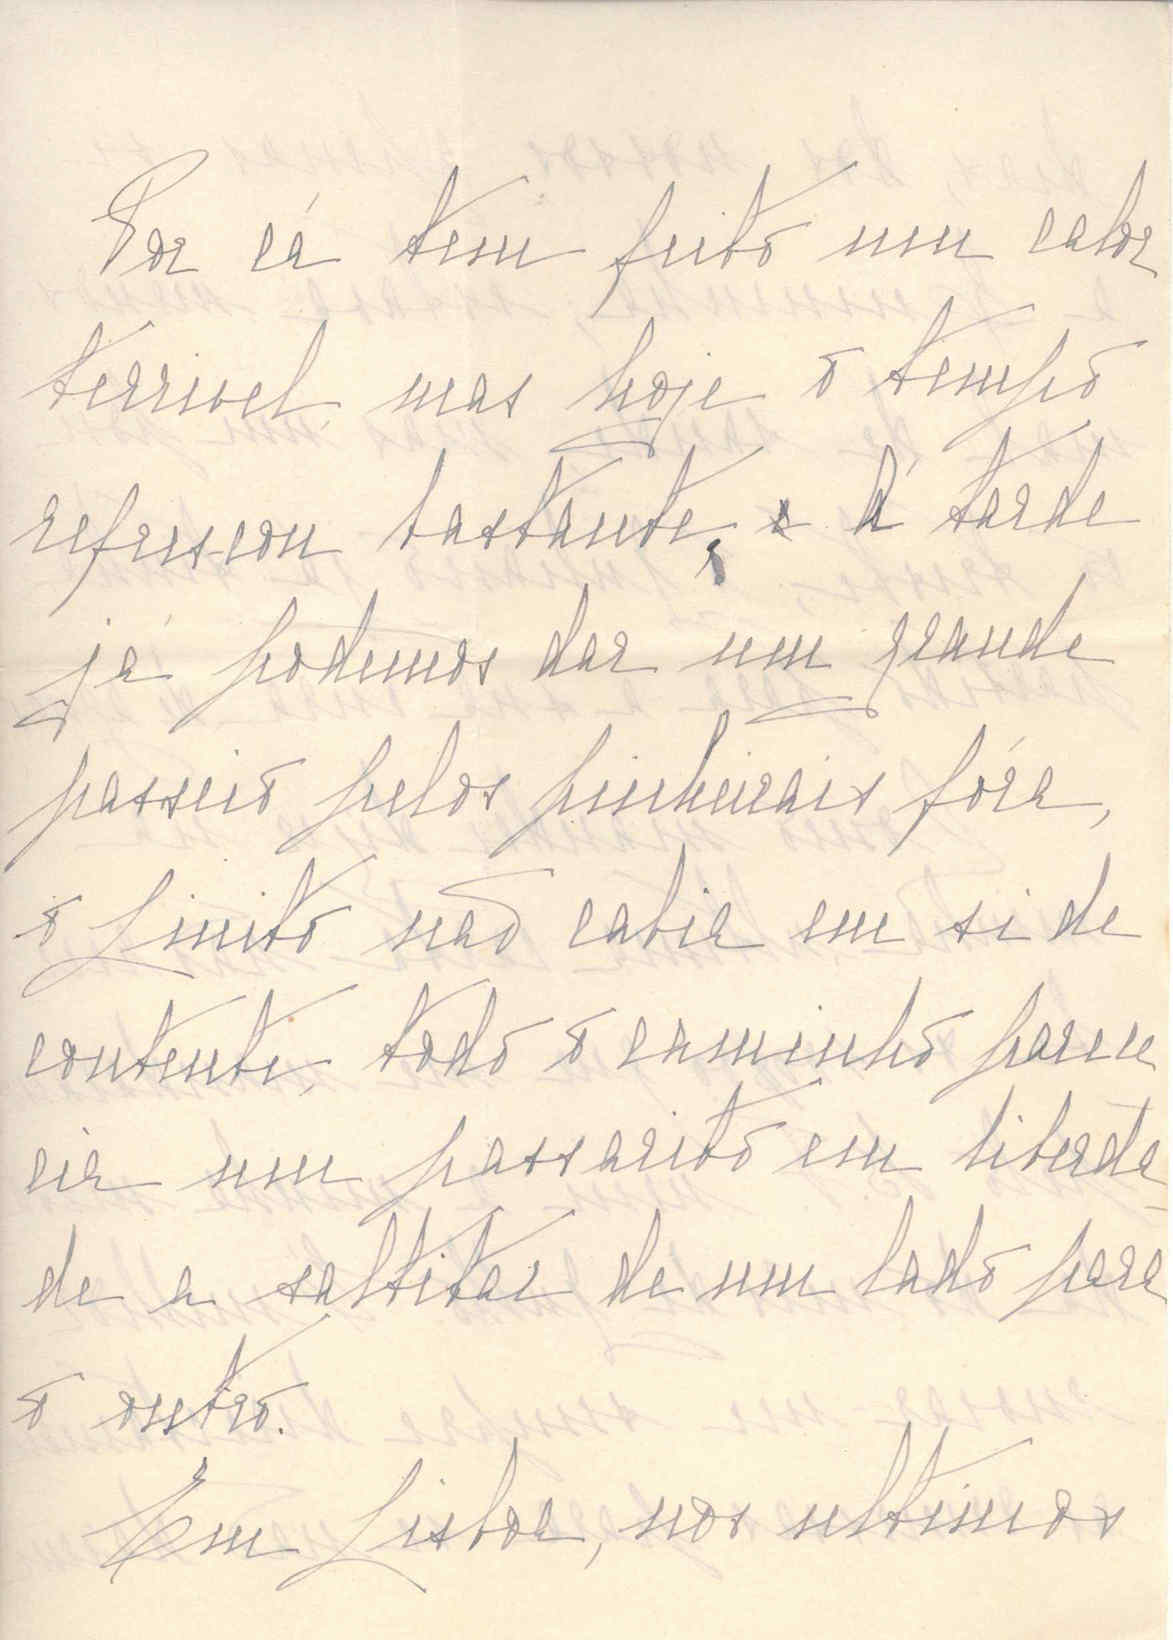 Por cá tem feito um calor
terrivel, mas hoje o tempo
refrescou bastante, e á tarde
já podemos dar um grande
passeio pelos pinheirais fóra,
o Linito não cabia em si de
contente, todo o caminho pare
cia um passarito em liberda
de a saltitar de um lado para
o outro.
Em Lisboa, nos ultimos